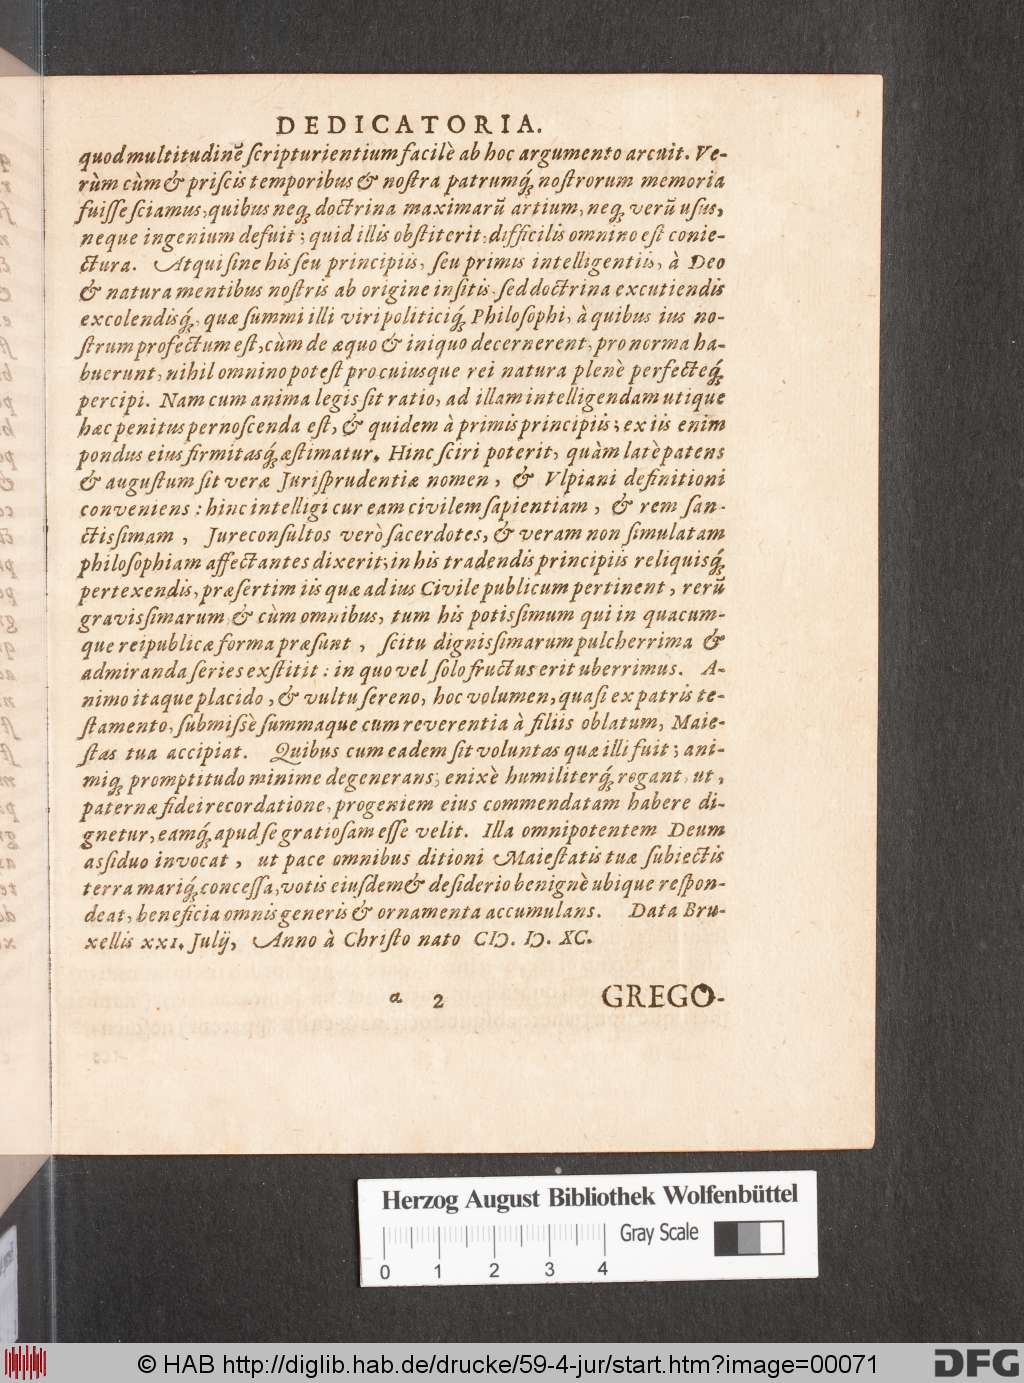 DEDICATORIA.
quod multitudinẽ ſcripturientium facilè ab hoc argumento arcuit. Ve-
rùm cùm & priſcis temporibus & noſtra patrumq́ꝫ noſtrorum memoria
fuiſſe ſciamus, quibus neqꝫ doctrina maximarũ artium, neqꝫ verũ uſus,
neque ingenium defuit; quid illis obſtiterit, difficilis omnino eſt conie-
ctura. Atqui ſine his ſeu principiis, ſeu primis intelligentiis, à Deo
& natura mentibus noſtris ab origine inſitis, ſed doctrina excutiendis
excolendisq́ꝫ, quæ ſummi illi viri politiciq́ꝫ Philoſophi, à quibus ius no-
ſtrum profectum eſt, cùm de æquo & iniquo decernerent, pro norma ha-
buerunt, nihil omnino poteſt pro cuiusque rei natura plenè perfecteq́ꝫ
percipi. Nam cum anima legis ſit ratio, ad illam intelligendam utique
hæc penitus pernoſcenda eſt, & quidem à primis principiis; ex iis enim
pondus eius firmitasq́ꝫ æſtimatur. Hinc ſciri poterit, quàm latè patens
& auguſtum ſit veræ Juriſprudentiæ nomen, & Vlpiani definitioni
conveniens: hinc intelligi cur eam civilem ſapientiam, & rem ſan-
ctisſimam, Jureconſultos verò ſacerdotes, & veram non ſimulatam
philoſophiam affectantes dixerit; in his tradendis principiis reliquisq́ꝫ
pertexendis, præſertim iis quæ ad ius Civile publicum pertinent, rerũ
gravisſimarum, & cùm omnibus, tum his potisſimum qui in quacum-
que reipublicæ forma præſunt, ſcitu dignisſimarum pulcherrima &
admiranda ſeries exſtitit: in quo vel ſolo fructus erit uberrimus. A-
nimo itaque placido, & vultu ſereno, hoc volumen, quaſi ex patris te-
ſtamento, ſubmiſsè ſummaque cum reverentia à filiis oblatum, Maie-
ſtas tua accipiat. Quibus cum eadem ſit voluntas quæ illi fuit; ani-
miqꝫ promptitudo minime degenerans; enixè humiliterq́ꝫ rogant, ut,
paternæ fidei recordatione, progeniem eius commendatam habere di-
gnetur, eamq́ꝫ apud ſe gratioſam eſſe velit. Illa omnipotentem Deum
asſiduo invocat, ut pace omnibus ditioni Maieſtatis tuæ ſubiectis
terra mariq́ꝫ conceſſa, votis eiuſdem & deſiderio benignè ubique reſpon-
deat, beneficia omnis generis & ornamenta accumulans. Data Bru-
xellis XXI. Julij, Anno à Chriſto nato CIↃ. IↃ. XC.
a 2 GREGO-
Herzog August Bibliothek Wolfenbüttel
Gray Scale
0 1 2 3 4
© HAB http://diglib.hab.de/drucke/59-4-jur/start.htm?image=00071
DFG